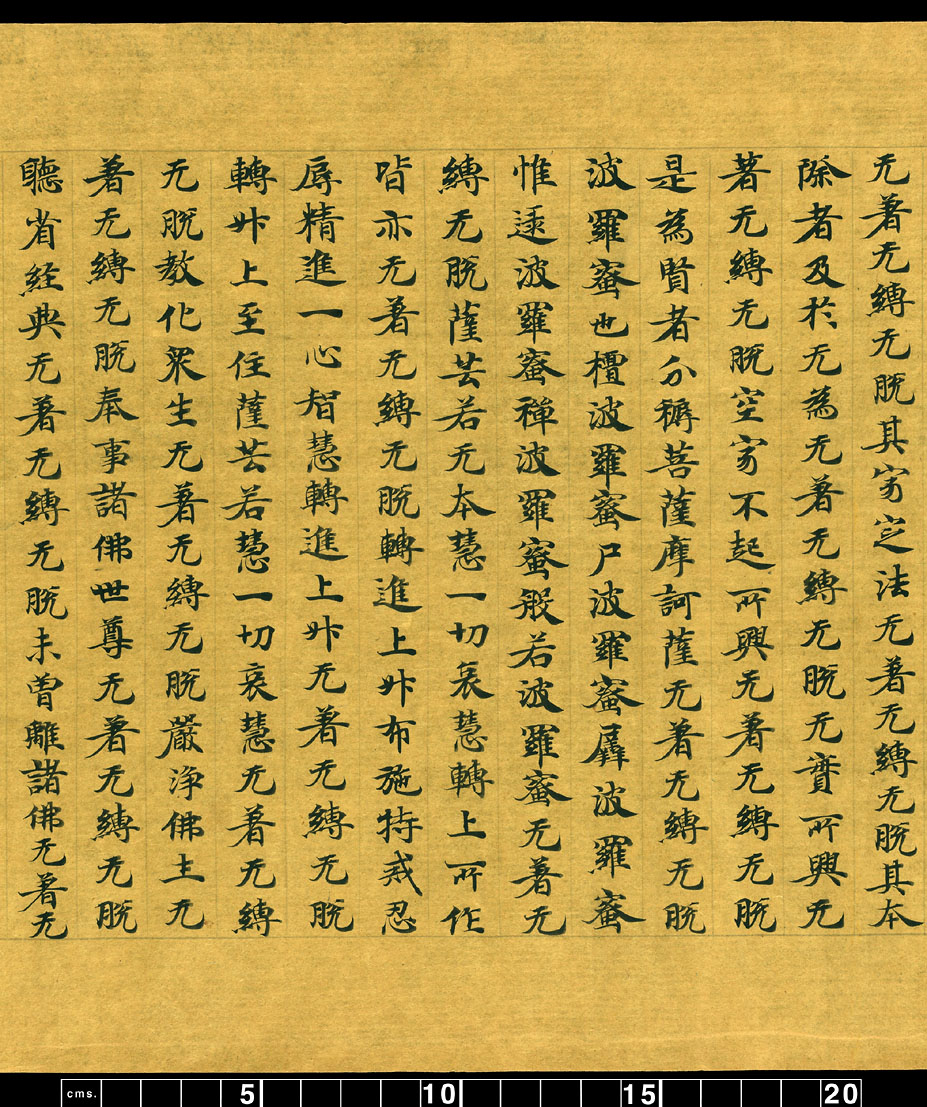 无著无縛无脫其家定法无著无縛无脫其本
際者及於无為无著无縛无脫无實所興无
著无縛无脫空家不起所興无著无縛无脫
是為賢者分耨菩薩摩訶薩无著无縛无脫
波羅蜜也檀波羅蜜尸波羅蜜羼波羅蜜
惟逮波羅蜜禪波羅蜜般若波羅蜜无著无
縛无脫薩芸若无本慧一切哀慧轉上所作
皆亦无著无縛无脫轉進上妙布施持戒忍
辱精進一心智慧轉進上妙无著无縛无脫
轉妙上至住薩芸若慧一切哀慧无著无縛
无脫教化眾生无著无縛无脫嚴淨佛土无
著无縛无脫奉事諸佛世尊无著无縛无脫
聽省經典无著无縛无脫未曾離諸佛无著无
cms. 5 10 15 20